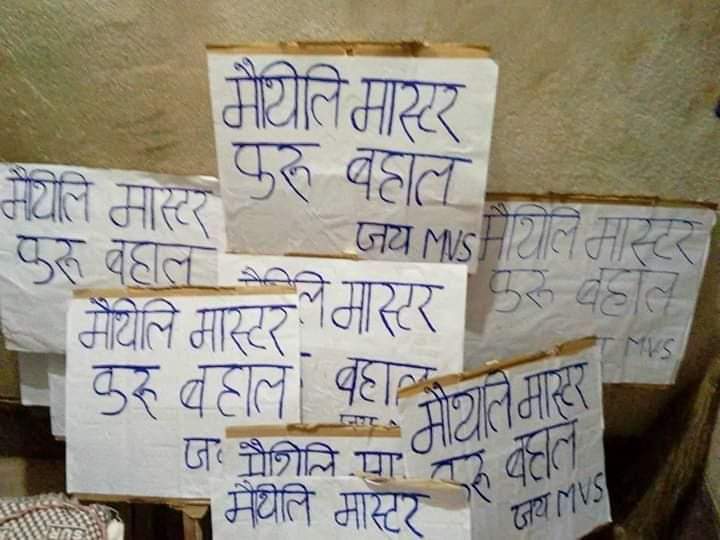 मैथिलि मास्टर
कुरू बहाल
जय MVS
मैथिलि मास्टर
कुरू बहाल
मैथिलि मास्टर
कुरू बहाल
MVS
मास्टर
बहाल
मैथिलि मास्टर
कुरू बहाल
मैथिलि मास्टर
कुरू बहाल
जय MVS
मैथिलि
मैथिलि मास्टर